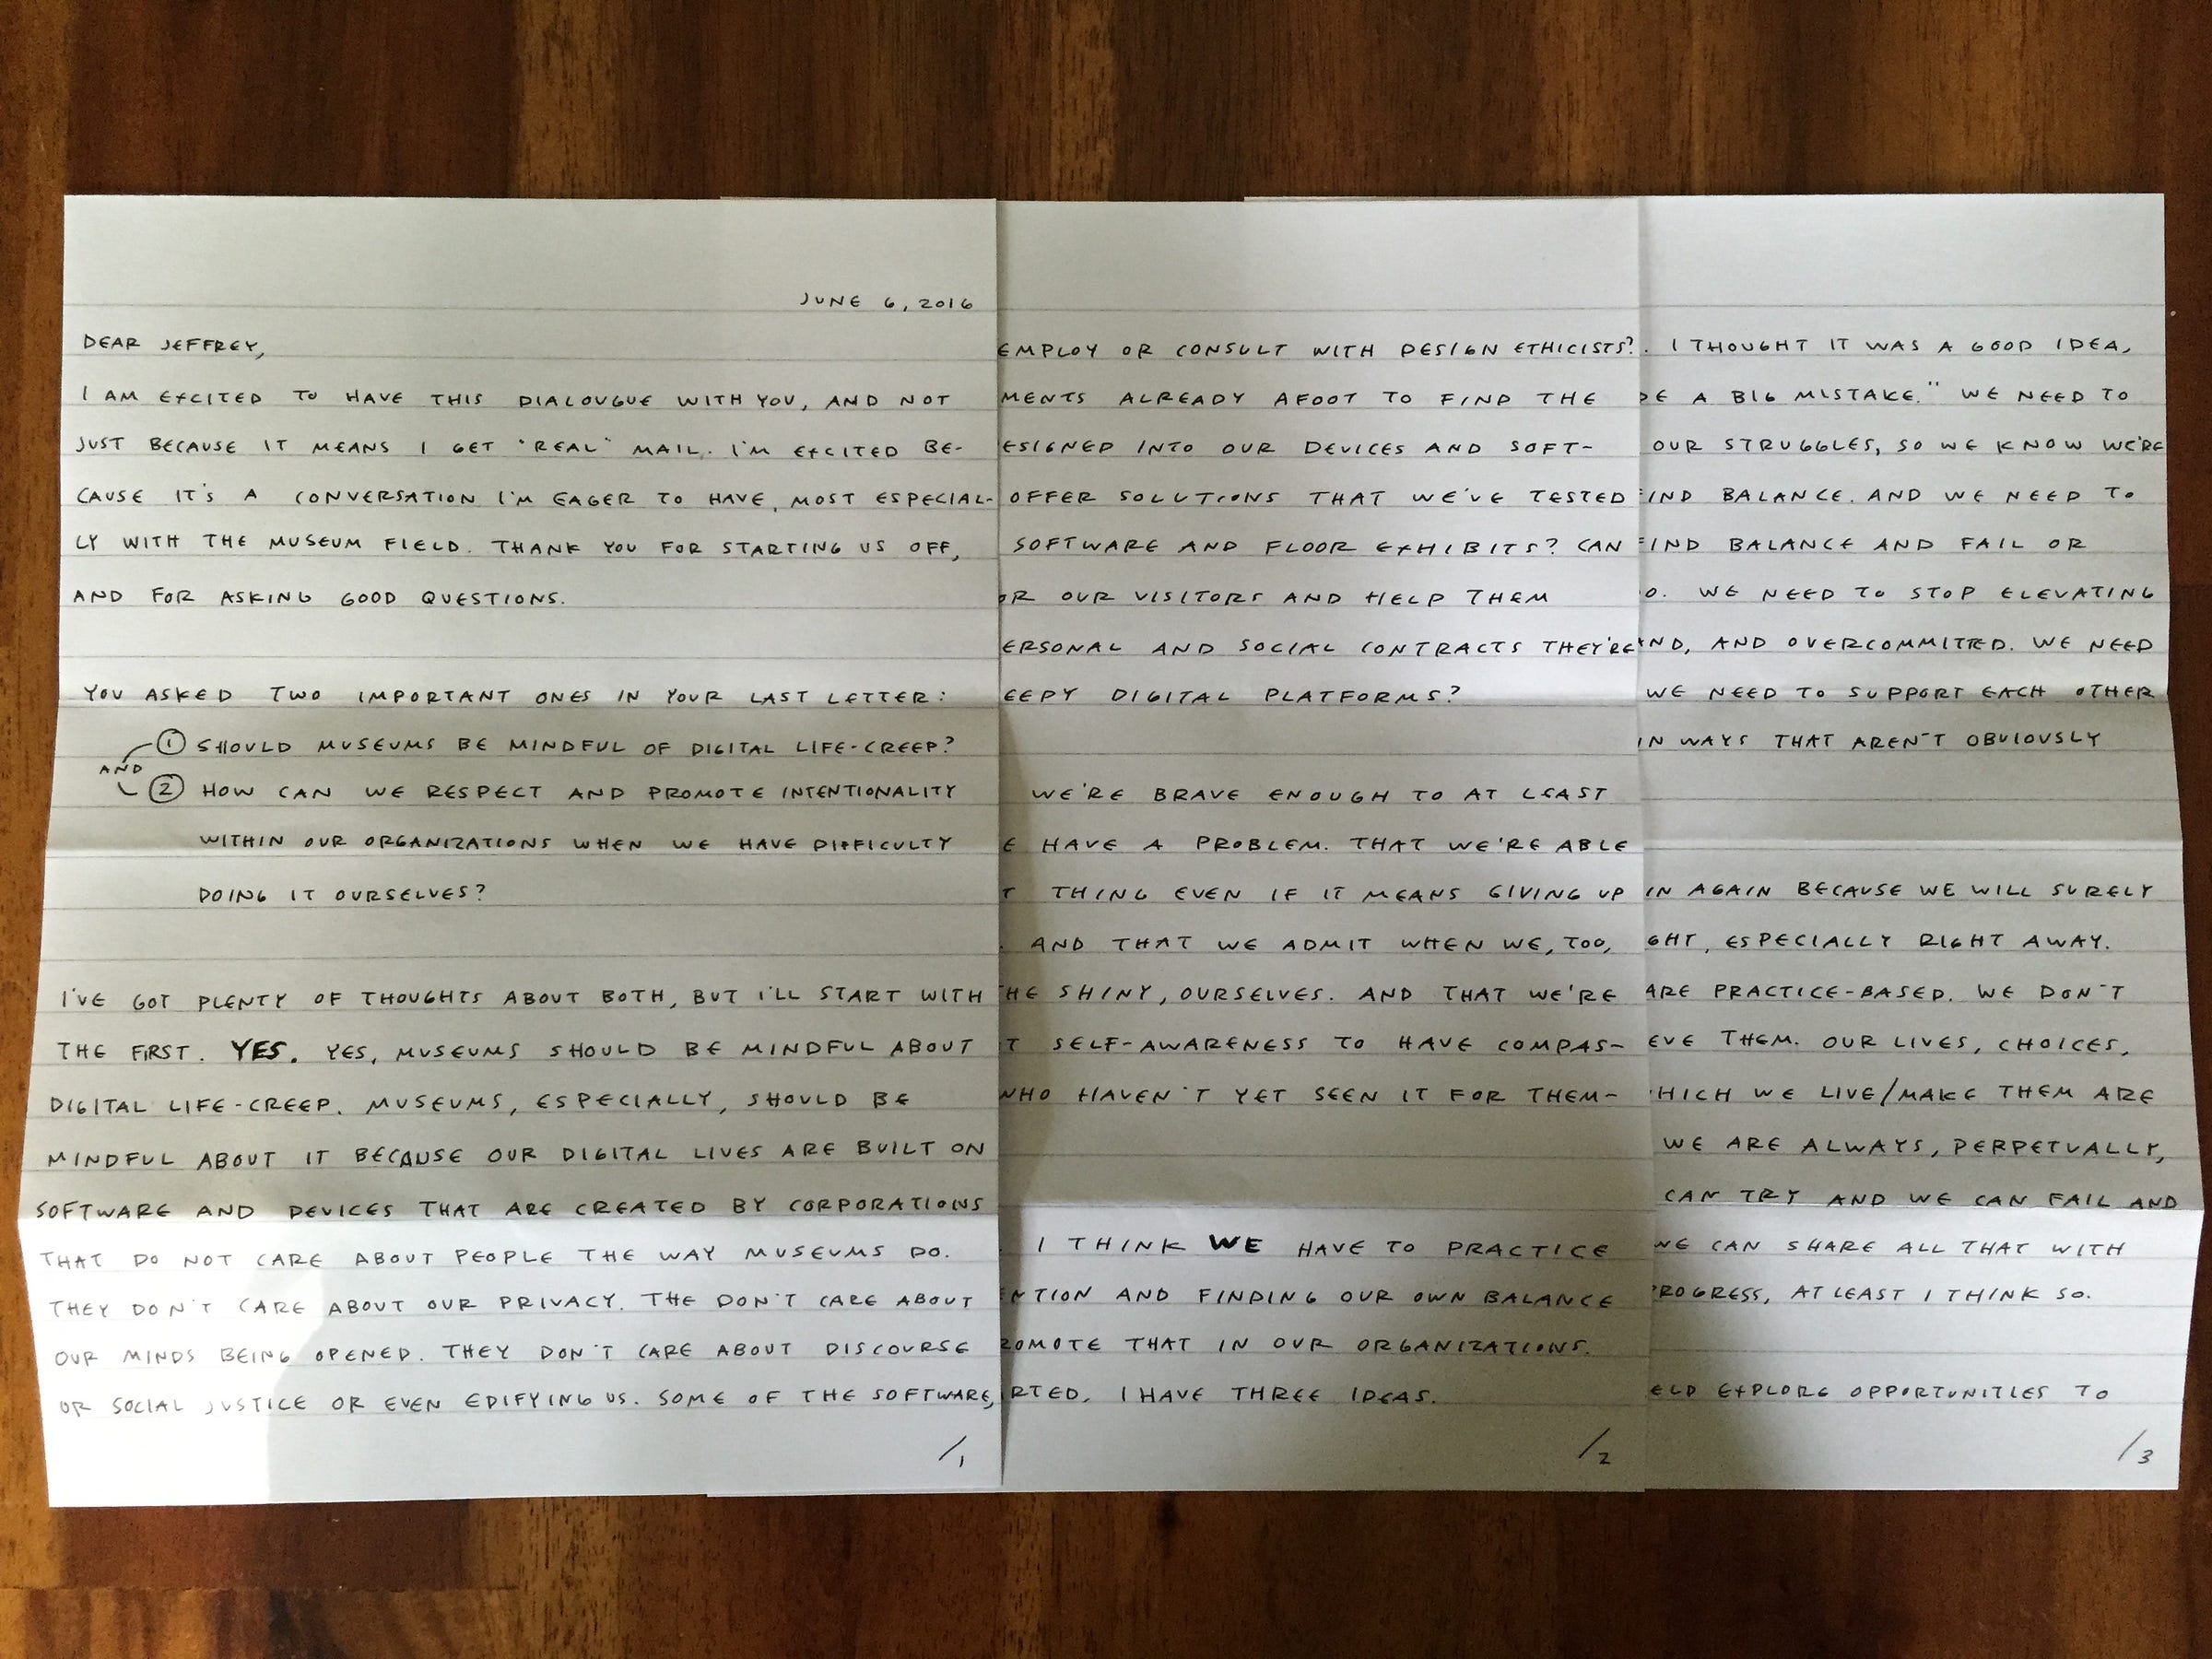 JUNE 6, 2016
DEAR JEFFREY,
I AM EXCITED TO HAVE THIS DIALOUGUE WITH YOU, AND NOT
JUST BECAUSE IT MEANS I GET "REAL" MAIL. I'M EXCITED BE-
CAUSE IT'S A CONVERSATION I'M EAGER TO HAVE, MOST ESPECIAL-
LY WITH THE MUSEUM FIELD. THANK YOU FOR STARTING US OFF,
AND FOR ASKING GOOD QUESTIONS.
YOU ASKED TWO IMPORTANT ONES IN YOUR LAST LETTER:
① SHOULD MUSEUMS BE MINDFUL OF DIGITAL LIFE-CREEP?
AND
② HOW CAN WE RESPECT AND PROMOTE INTENTIONALITY
WITHIN OUR ORGANIZATIONS WHEN WE HAVE DIFFICULTY
DOING IT OURSELVES?
I'VE GOT PLENTY OF THOUGHTS ABOUT BOTH, BUT I'LL START WITH
THE FIRST. YES. YES, MUSEUMS SHOULD BE MINDFUL ABOUT
DIGITAL LIFE-CREEP. MUSEUMS, ESPECIALLY, SHOULD BE
MINDFUL ABOUT IT BECAUSE OUR DIGITAL LIVES ARE BUILT ON
SOFTWARE AND DEVICES THAT ARE CREATED BY CORPORATIONS
THAT DO NOT CARE ABOUT PEOPLE THE WAY MUSEUMS DO.
THEY DON'T CARE ABOUT OUR PRIVACY. THE DON'T CARE ABOUT
OUR MINDS BEING OPENED. THEY DON'T CARE ABOUT DISCOURSE
OR SOCIAL JUSTICE OR EVEN EDIFYING US. SOME OF THE SOFTWARE,
/1
EMPLOY OR CONSULT WITH DESIGN ETHICISTS?
MENTS ALREADY AFOOT TO FIND THE
ESIGNED INTO OUR DEVICES AND SOFT-
OFFER SOLUTIONS THAT WE'VE TESTED
SOFTWARE AND FLOOR EXHIBITS? CAN
OR OUR VISITORS AND HELP THEM
ERSONAL AND SOCIAL CONTRACTS THEY'RE
EEPY DIGITAL PLATFORMS?
WE'RE BRAVE ENOUGH TO AT LEAST
E HAVE A PROBLEM. THAT WE'RE ABLE
T THING EVEN IF IT MEANS GIVING UP
. AND THAT WE ADMIT WHEN WE, TOO,
THE SHINY, OURSELVES. AND THAT WE'RE
T SELF-AWARENESS TO HAVE COMPAS-
WHO HAVEN'T YET SEEN IT FOR THEM-
. I THINK WE HAVE TO PRACTICE
NTION AND FINDING OUR OWN BALANCE
ROMOTE THAT IN OUR ORGANIZATIONS.
RTED, I HAVE THREE IDEAS.
/2
. I THOUGHT IT WAS A GOOD IDEA,
DE A BIG MISTAKE." WE NEED TO
OUR STRUGGLES, SO WE KNOW WE'RE
FIND BALANCE. AND WE NEED TO
FIND BALANCE AND FAIL OR
O. WE NEED TO STOP ELEVATING
AND, AND OVERCOMMITTED. WE NEED
WE NEED TO SUPPORT EACH OTHER
IN WAYS THAT AREN'T OBVIOUSLY
IN AGAIN BECAUSE WE WILL SURELY
GHT, ESPECIALLY RIGHT AWAY.
ARE PRACTICE-BASED. WE DON'T
EVE THEM. OUR LIVES, CHOICES,
HICH WE LIVE/MAKE THEM ARE
WE ARE ALWAYS, PERPETUALLY,
CAN TRY AND WE CAN FAIL AND
WE CAN SHARE ALL THAT WITH
PROGRESS, AT LEAST I THINK SO.
ELD EXPLORE OPPORTUNITIES TO
/3